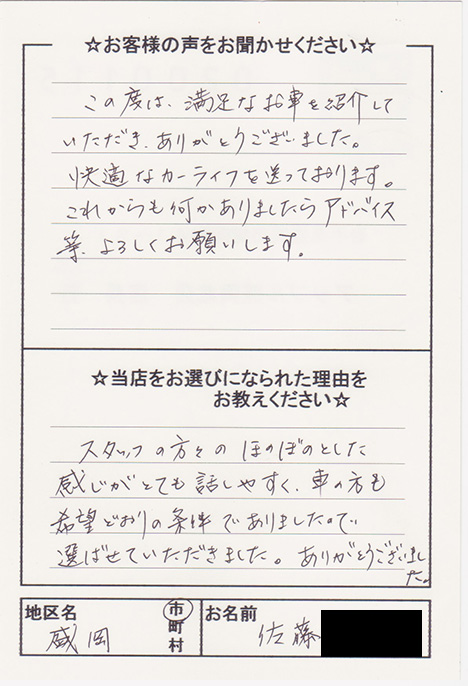 ☆お客様の声をお聞かせください☆
この度は、満足なお車を紹介して
いただき、ありがとうございました。
快適なカーライフを送っております。
これからも何かありましたらアドバイス
等、よろしくお願いします。
☆当店をお選びになられた理由を
お教えください☆
スタッフの方々のほのぼのとした
感じがとても話しやすく、車の方も
希望どおりの条件でありましたので
選ばせていただきました。ありがとうございまし
た。
地区名
盛岡
市
町
村
お名前
佐藤